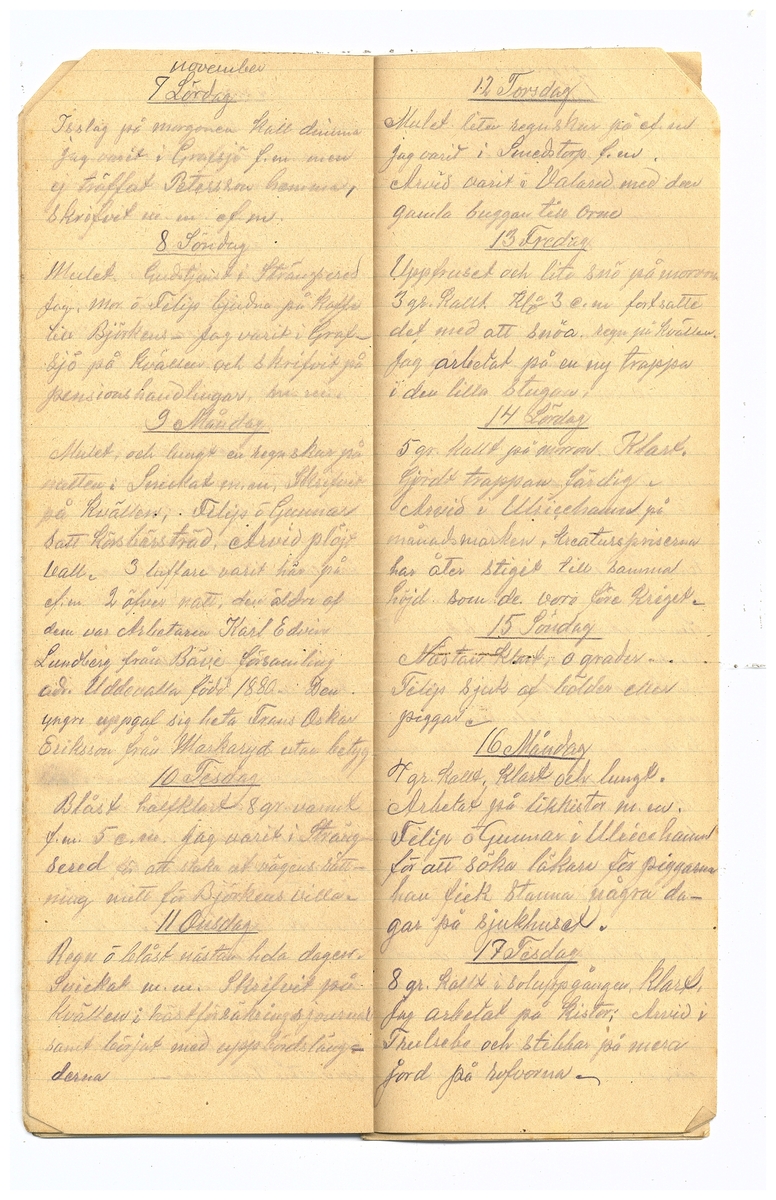 november
7 Lördag
Isslag på morgonen Kall dimma
jag varit i Grafsjö f.m. men
ej träffat Petersson hemma,
skrifvit m.m ef.m.
8 Söndag
Mulet. Gudstjenst i Strängsered
Jag, mor ö Felip bjudna på Kaffe
till Björkens – Jag varit i Graf-
sjö på Kvällen och skrifvit på
pensionshandlingar,
9 Måndag
Mulet, och lungt en regnskur på
natten. Snickat m.m, Skrifvit
på Kvällen, Felip ö Gunnar
satt Körsbärsträd, Arvid plöjt
Vall. 3 luffare varit här på
ef.m. 2 öfver natt, den äldre af
dem var Arbetaren Karl Edvin
Lundberg från Bäfve församling
adr. Uddevalla född 1880. Den
yngre uppgaf sig heta Frans Oskar
Eriksson från Markaryd utan betyg
10 Tisdag
Blåst halfklart 8 gr. varmt
f.m. 5 e.m. jag varit i Sträng-
sered för att staka ut vägens sätt-
ning mitt för Björkens villa.
11 Onsdag
Regn ö blåst nästan hela dagen.
Snickat m.m. Skrifvit på
Kvällen i hästförsäkrings
samt börjat med uppbördsläng-
derna
12 Torsdag
Mulet liten regnskur på ef.m
jag varit i Smedstorp f.m.
Arvid varit i Valared med den
gamla buggan till
13 Fredag
Uppfruset och lite snö på morron
3 gr. Kallt Kl 3 e.m fortsatte
det med att snöa. regn på Kvällen.
Jag arbetat på en ny trappa
i den lilla stugan.
14 Lördag
5 gr. Kallt på morron Klart.
Gjordt trappan färdig.
Arvid i Ulricehamn på
månadsmarken, Kreaturspriserna
har åter stiget till samma
höjd som de voro före Kriget.
15 Söndag
Nästan Klart, 0 grader.
Felip sjuk af bölder eller
piggar
16 Måndag
7 gr. Kallt, Klart och lungt.
Arbetat på likkistor m.m.
Felip ö Gunnar i Ulricehamn
för att söka läkare för piggarna
han fick stanna några da-
gar på sjukhuset.
17 Tisdag
8 gr. Kallt i soluppgången, Klart,
Jag arbetat på Kistor; Arvid i
Trulsebo och stibbar på mera
jord på rofvorna